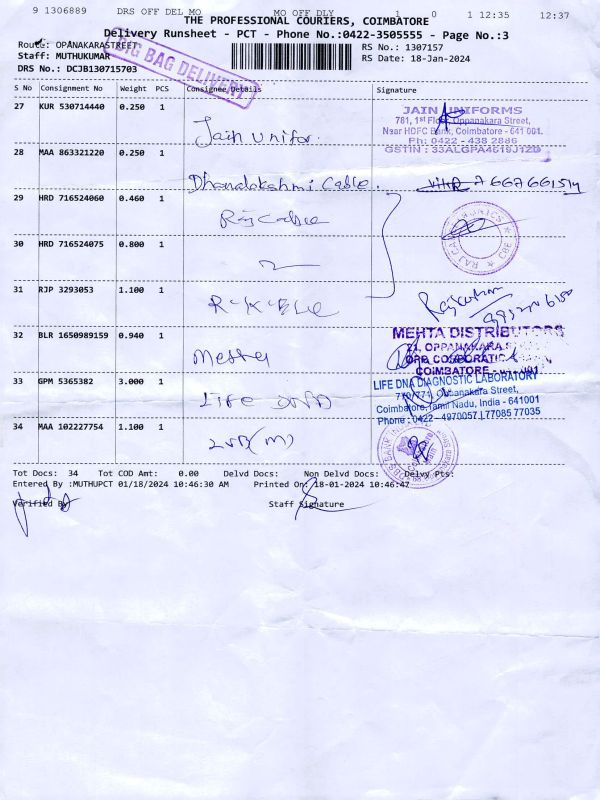 9 1306889 DRS OFF DEL MO MO OFF DLY 1 0 1 12:35 12:37
THE PROFESSIONAL COURIERS, COIMBATORE
Delivery Runsheet - PCT - Phone No.:0422-3505555 - Page No.:3
Route: OPANAKARASTREET RS No.: 1307157
Staff: MUTHUKUMAR RS Date: 18-Jan-2024
DRS No.: DCJB130715703
BIG BAG DELIVERY
S No Consignment No Weight PCS Consignee Details Signature
27 KUR 530714440 0.250 1 Jain Unifor.
JAIN UNIFORMS
781, 1st Floor, Oppanakara Street,
Near HDFC Bank, Coimbatore - 641 001.
Ph: 0422 - 438 2886
28 MAA 863321220 0.250 1 Dhanalakshmi Cable.
29 HRD 716524060 0.460 1 Raj Cable
30 HRD 716524075 0.800 1
31 RJP 3293053 1.100 1
32 BLR 1650989159 0.940 1
MEHTA DISTRIBUTORS
OPPANAKARA
OPP. CORPORATION BANK,
COIMBATORE
33 GPM 5365382 3.000 1 LIFE DNA
LIFE DNA DIAGNOSTIC LABORATORY
Oppanakara Street,
Coimbatore, Tamil Nadu, India - 641001
Phone : 0422 - 4970057 | 77085 77035
34 MAA 102227754 1.100 1
Tot Docs: 34 Tot COD Amt: 0.00 Delvd Docs: Non Delvd Docs: Delvy Pts:
Entered By :MUTHUPCT 01/18/2024 10:46:30 AM Printed On: 18-01-2024 10:46:47
Verified By Staff Signature